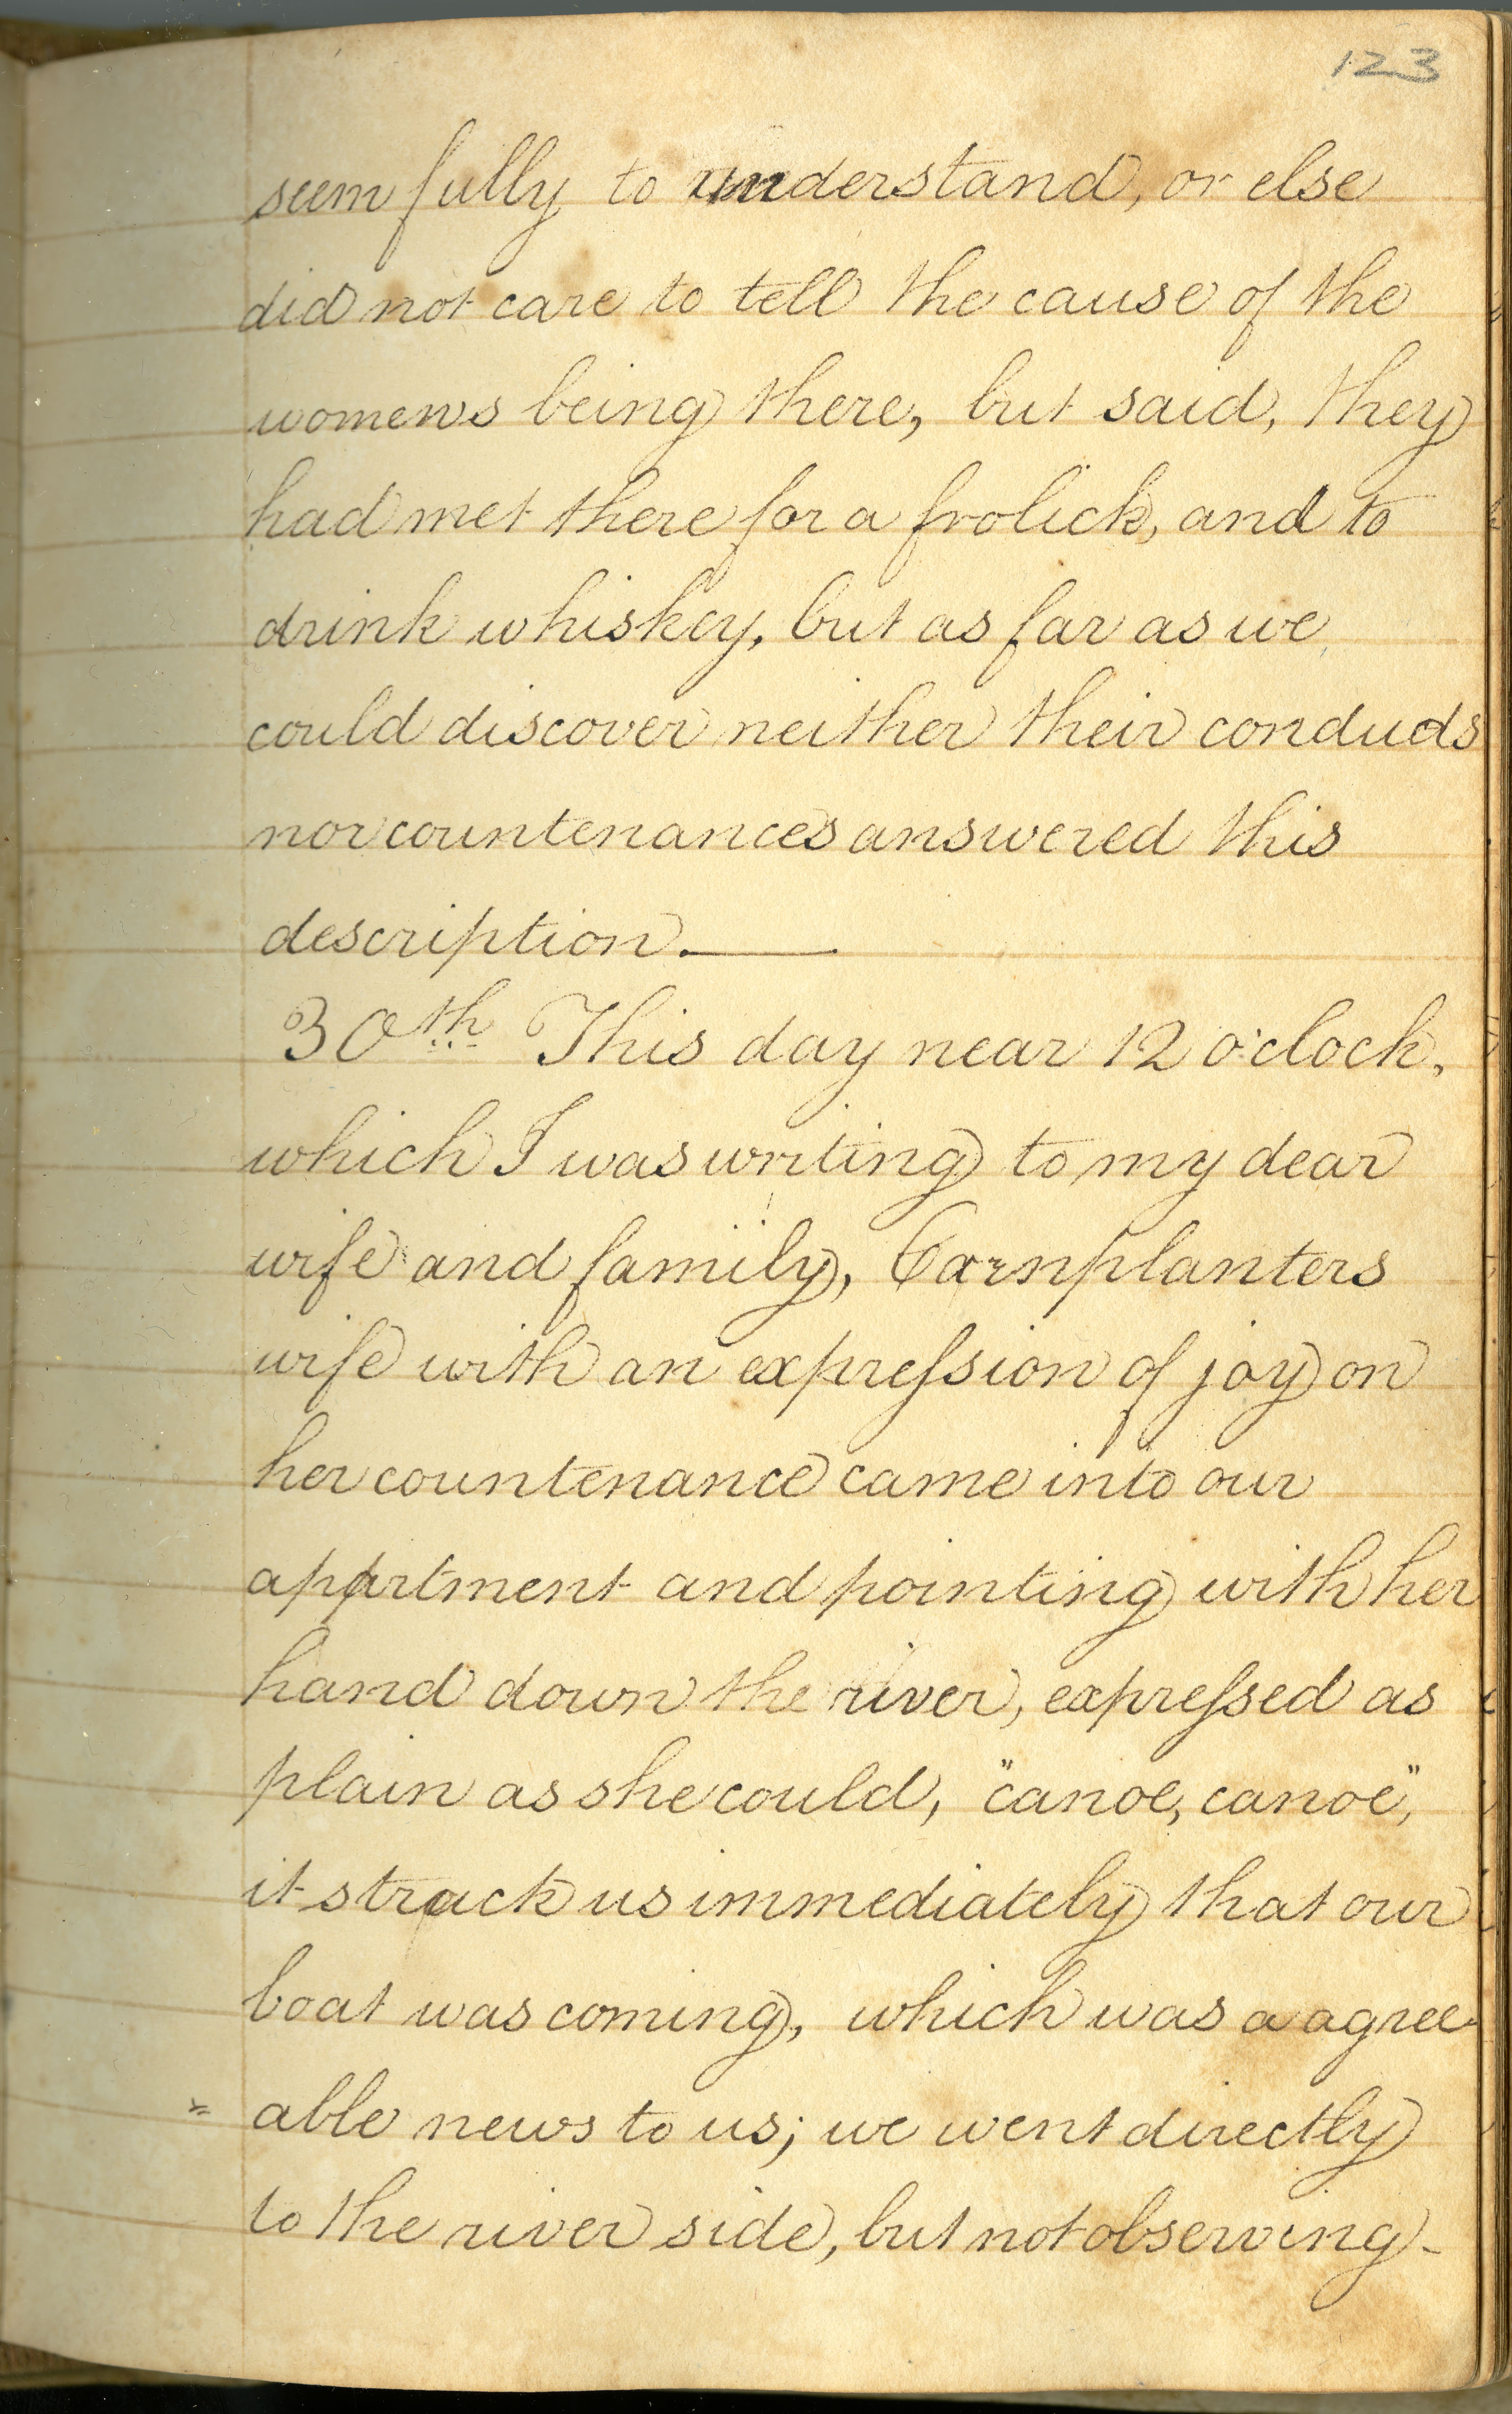 123
seem fully to understand, or else
did not care to tell the cause of the
womens being there, but said, they
had met there for a frolick, and to
drink whiskey, but as far as we
could discover neither their conducts
nor countenances answered this
description.—
30th This day near 12 o'clock,
which I was writing to my dear
wife and family, Cornplanters
wife with an expreſsion of joy on
her countenance came into our
appartment and pointing with her
hand down the river, expreſsed as
plain as she could, "canoe, canoe",
it struck us immediately that our
boat was coming, which was a agree-
= able news to us; we went directly
to the river side, but not observing-